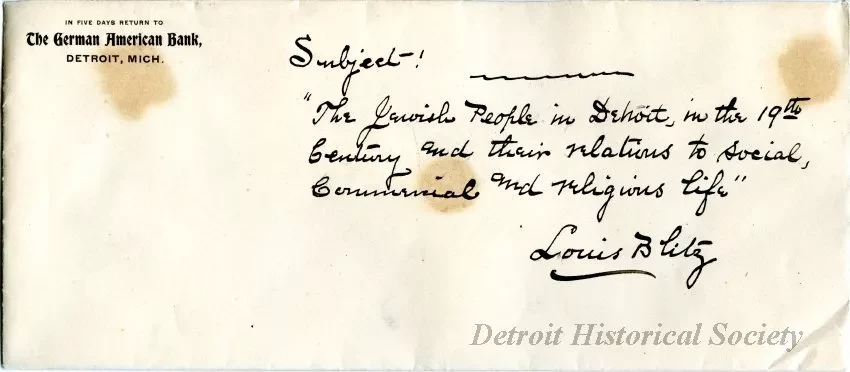 IN FIVE DAYS RETURN TO
The German American Bank,
DETROIT, MICH.
Subject!
"The Jewish People in Detroit, in the 19th
Century and their relations to social,
Commercial and religious life"
Louis Blitz
Detroit Historical Society